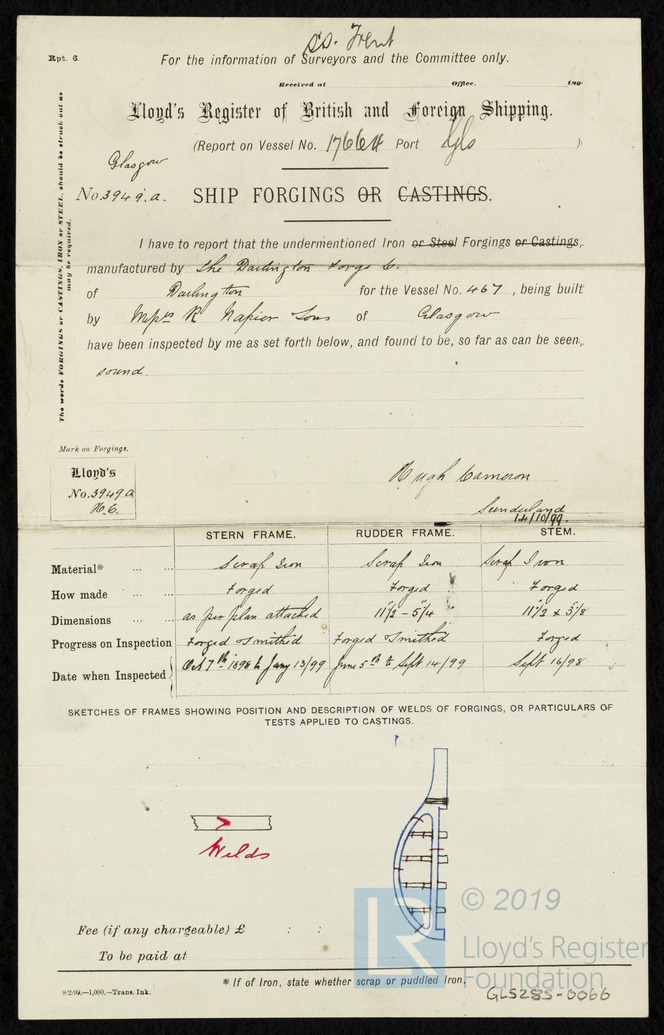 SS. Trent
Rpt. 6.
For the information of Surveyors and the Committee only.
Received at Office, 189
Lloyd's Register of British and Foreign Shipping.
(Report on Vessel No. 17664 Port Gls )
Glasgow
No. 3949.a. SHIP FORGINGS OR CASTINGS.
The words FORGINGS or CASTINGS, IRON or STEEL, should be struck out as
may be required.
I have to report that the undermentioned Iron or Steel Forgings or Castings,
manufactured by The Darlington Forge Co.
of Darlington for the Vessel No. 467, being built
by Mess R Napier Sons of Glasgow
have been inspected by me as set forth below, and found to be, so far as can be seen,
sound.
Mark on Forgings.
Lloyd's
No. 3949a
H.C.
Hugh Cameron
Sunderland
14/10/99.
STERN FRAME. RUDDER FRAME. STEM.
Material* ... ... Scrap Iron Scrap Iron Scrap Iron
How made ... ... Forged Forged Forged
Dimensions ... ... as per plan attached 11½ - 5¼ 11½ x 3⅛
Progress on Inspection Forged & Smithed Forged & Smithed Forged
Date when Inspected Oct 7th 1898 to Jany 13/99 June 5th to Sept 14/99 Sept 16/98
SKETCHES OF FRAMES SHOWING POSITION AND DESCRIPTION OF WELDS OF FORGINGS, OR PARTICULARS OF
TESTS APPLIED TO CASTINGS.
Welds
Fee (if any chargeable) £ : :
To be paid at
* If of Iron, state whether scrap or puddled Iron.
9/2/99.—1,000.—Trans. Ink.
GLS285-0066
LR
© 2019
Lloyd's Register
Foundation